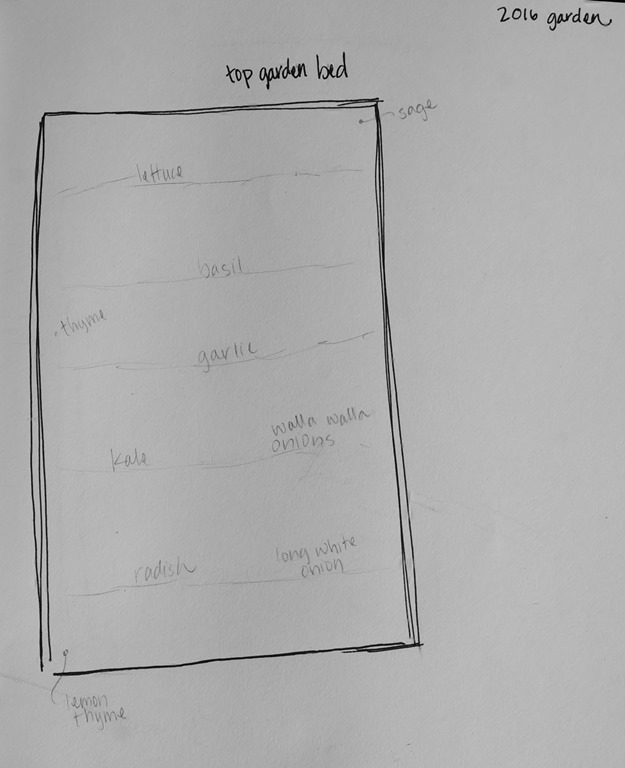 2016 garden
top garden bed
sage
lettuce
basil
thyme
garlic
walla walla
onions
kale
long white
onion
radish
lemon
thyme